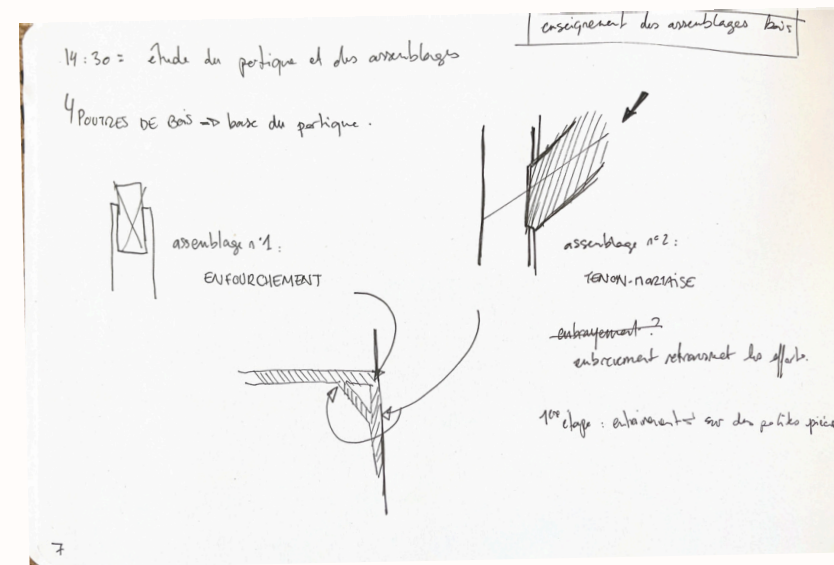 enseignement des assemblages bois
14:30 = étude du portique et des assemblages
4 POUTRES DE BOIS => base du portique.
assemblage n°1 :
ENFOURCHEMENT
assemblage n°2 :
TENON-MORTAISE
embrayement ?
embrèvement retransmet les efforts.
1ère étape : entraînement sur des petites pièces
7